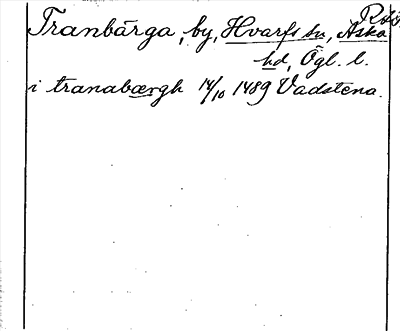 Tranbärga, by, Hvarfs sn, Aska
hd, Ögl. l.
i tranabærgh 14/10 1489 Vadstena.